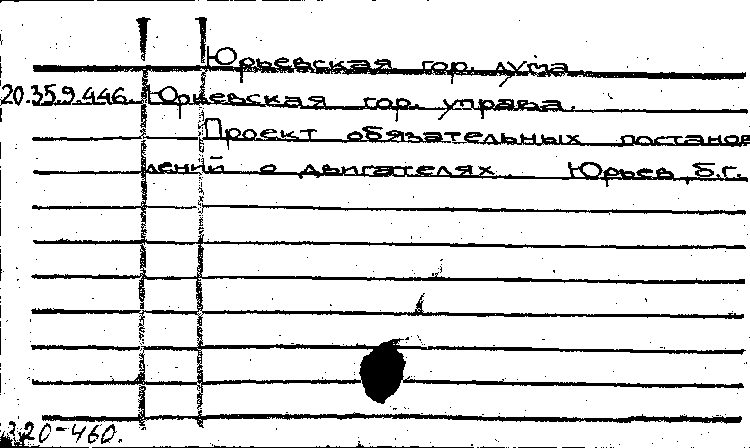 Юрьевская гор. дума
20.35.9.446. Юрьевская гор. управа.
Проект обязательных постанов
лений о двигателях. Юрьев, б.г.
320-460.